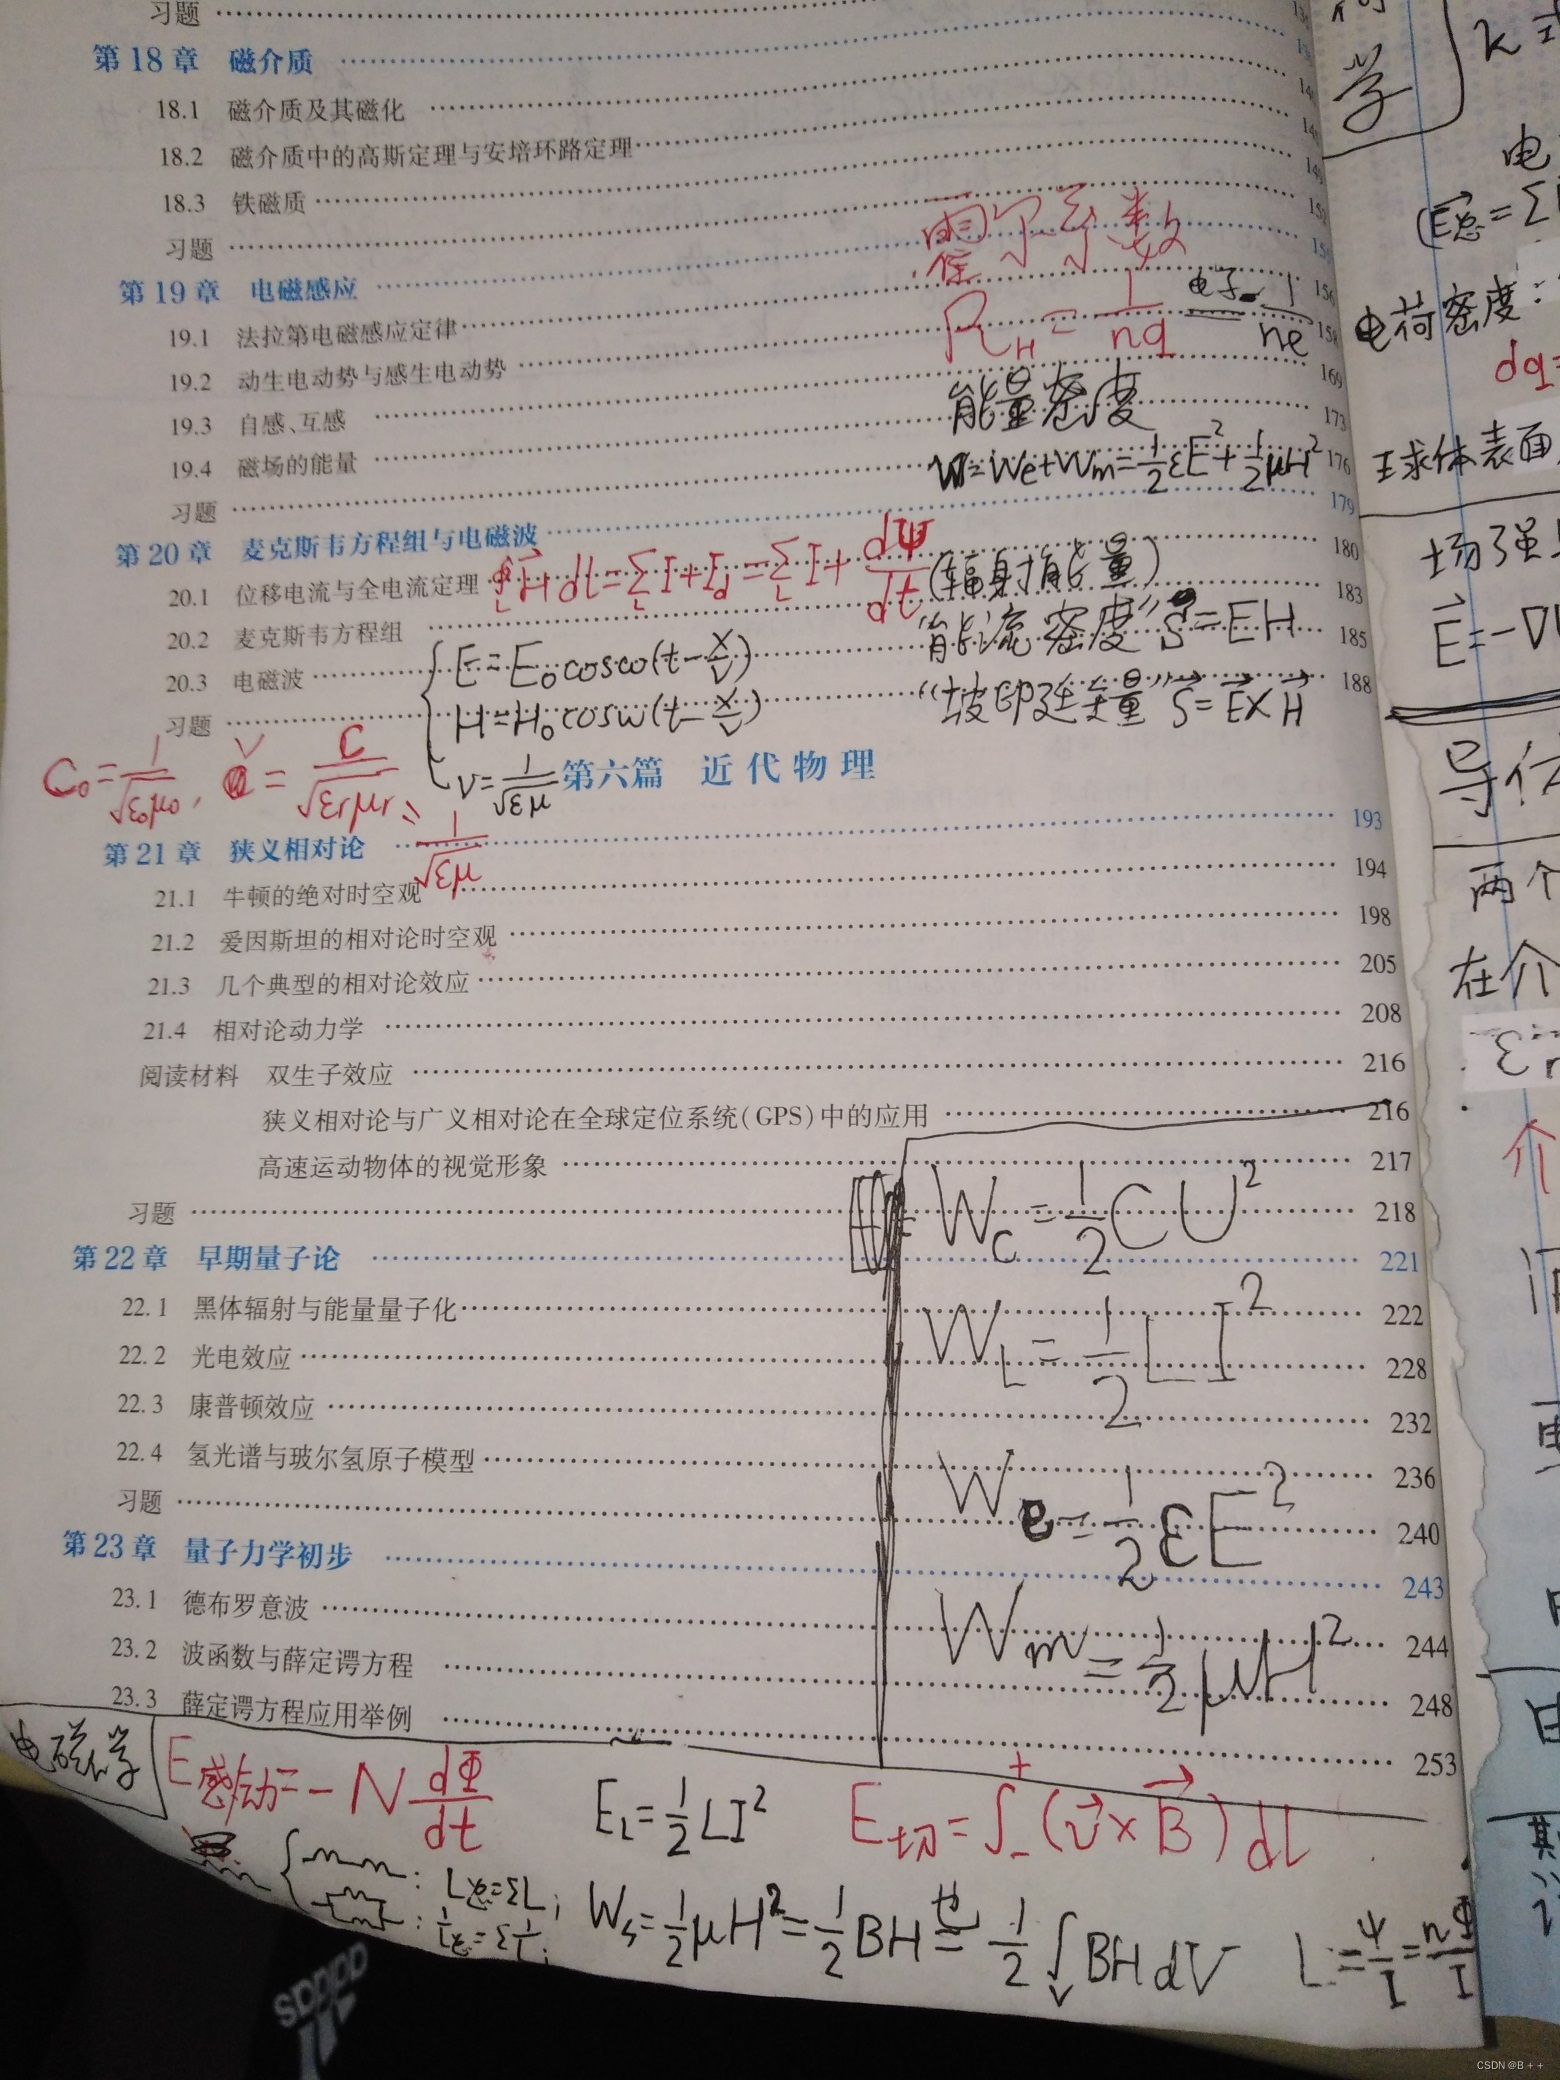 习题
第18章 磁介质
18.1 磁介质及其磁化
18.2 磁介质中的高斯定理与安培环路定理
18.3 铁磁质
习题
第19章 电磁感应 156
19.1 法拉第电磁感应定律 158
19.2 动生电动势与感生电动势 169
19.3 自感、互感 173
19.4 磁场的能量 176
习题 179
第20章 麦克斯韦方程组与电磁波 180
20.1 位移电流与全电流定理 183
20.2 麦克斯韦方程组 185
20.3 电磁波 188
习题
第六篇 近代物理
第21章 狭义相对论 193
21.1 牛顿的绝对时空观 194
21.2 爱因斯坦的相对论时空观 198
21.3 几个典型的相对论效应 205
21.4 相对论动力学 208
阅读材料 双生子效应 216
狭义相对论与广义相对论在全球定位系统(GPS)中的应用 216
高速运动物体的视觉形象 217
习题 218
第22章 早期量子论 221
22.1 黑体辐射与能量量子化 222
22.2 光电效应 228
22.3 康普顿效应 232
22.4 氢光谱与玻尔氢原子模型 236
习题 240
第23章 量子力学初步 243
23.1 德布罗意波 244
23.2 波函数与薛定谔方程 248
23.3 薛定谔方程应用举例 253
霍尔系数
R_H = 1/nq 电子 = 1/ne
能量密度
W=We+Wm=½εE²+½μH²
∮_L H⃗ dl=Σ_L I+I_d=Σ_L I+dΨ/dt
(辐射能量)
"能流密度"S=EH
"坡印廷矢量"S⃗=E⃗×H⃗
E=E₀cosω(t-x/v)
H=H₀cosω(t-x/v)
v=1/√εμ
C₀=1/√ε₀μ₀, v=C/√εrμr = 1/√εμ
W_C=½CU²
W_L=½LI²
W_e=½εE²
W_m=½μH²
电磁学
E感动=-N dΦ/dt
E_L=½LI²
E切=∫₋⁺(v⃗×B⃗)dl
L总=ΣL;
1/L总=Σ1/L;
W_s=½μH²=½BH
½∫_V BHdV
L=Ψ/I=nΦ/I
学
k=
电
(E⃗总=Σ
电荷密度:
dq=
球体表面
场强
E⃗=-∇
导体
两个
在介
εr
介
CSDN @B++